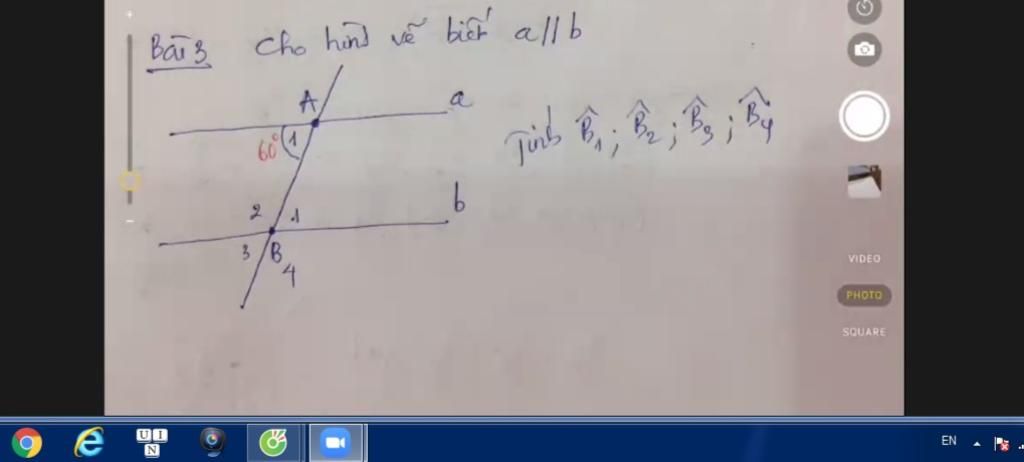 Bài 3 Cho hình vẽ biết a // b
A
a
60° 1
Tính B̂₁ ; B̂₂ ; B̂₃ ; B̂₄
b
2 1
3 B
4
VIDEO
PHOTO
SQUARE
U I
N
EN